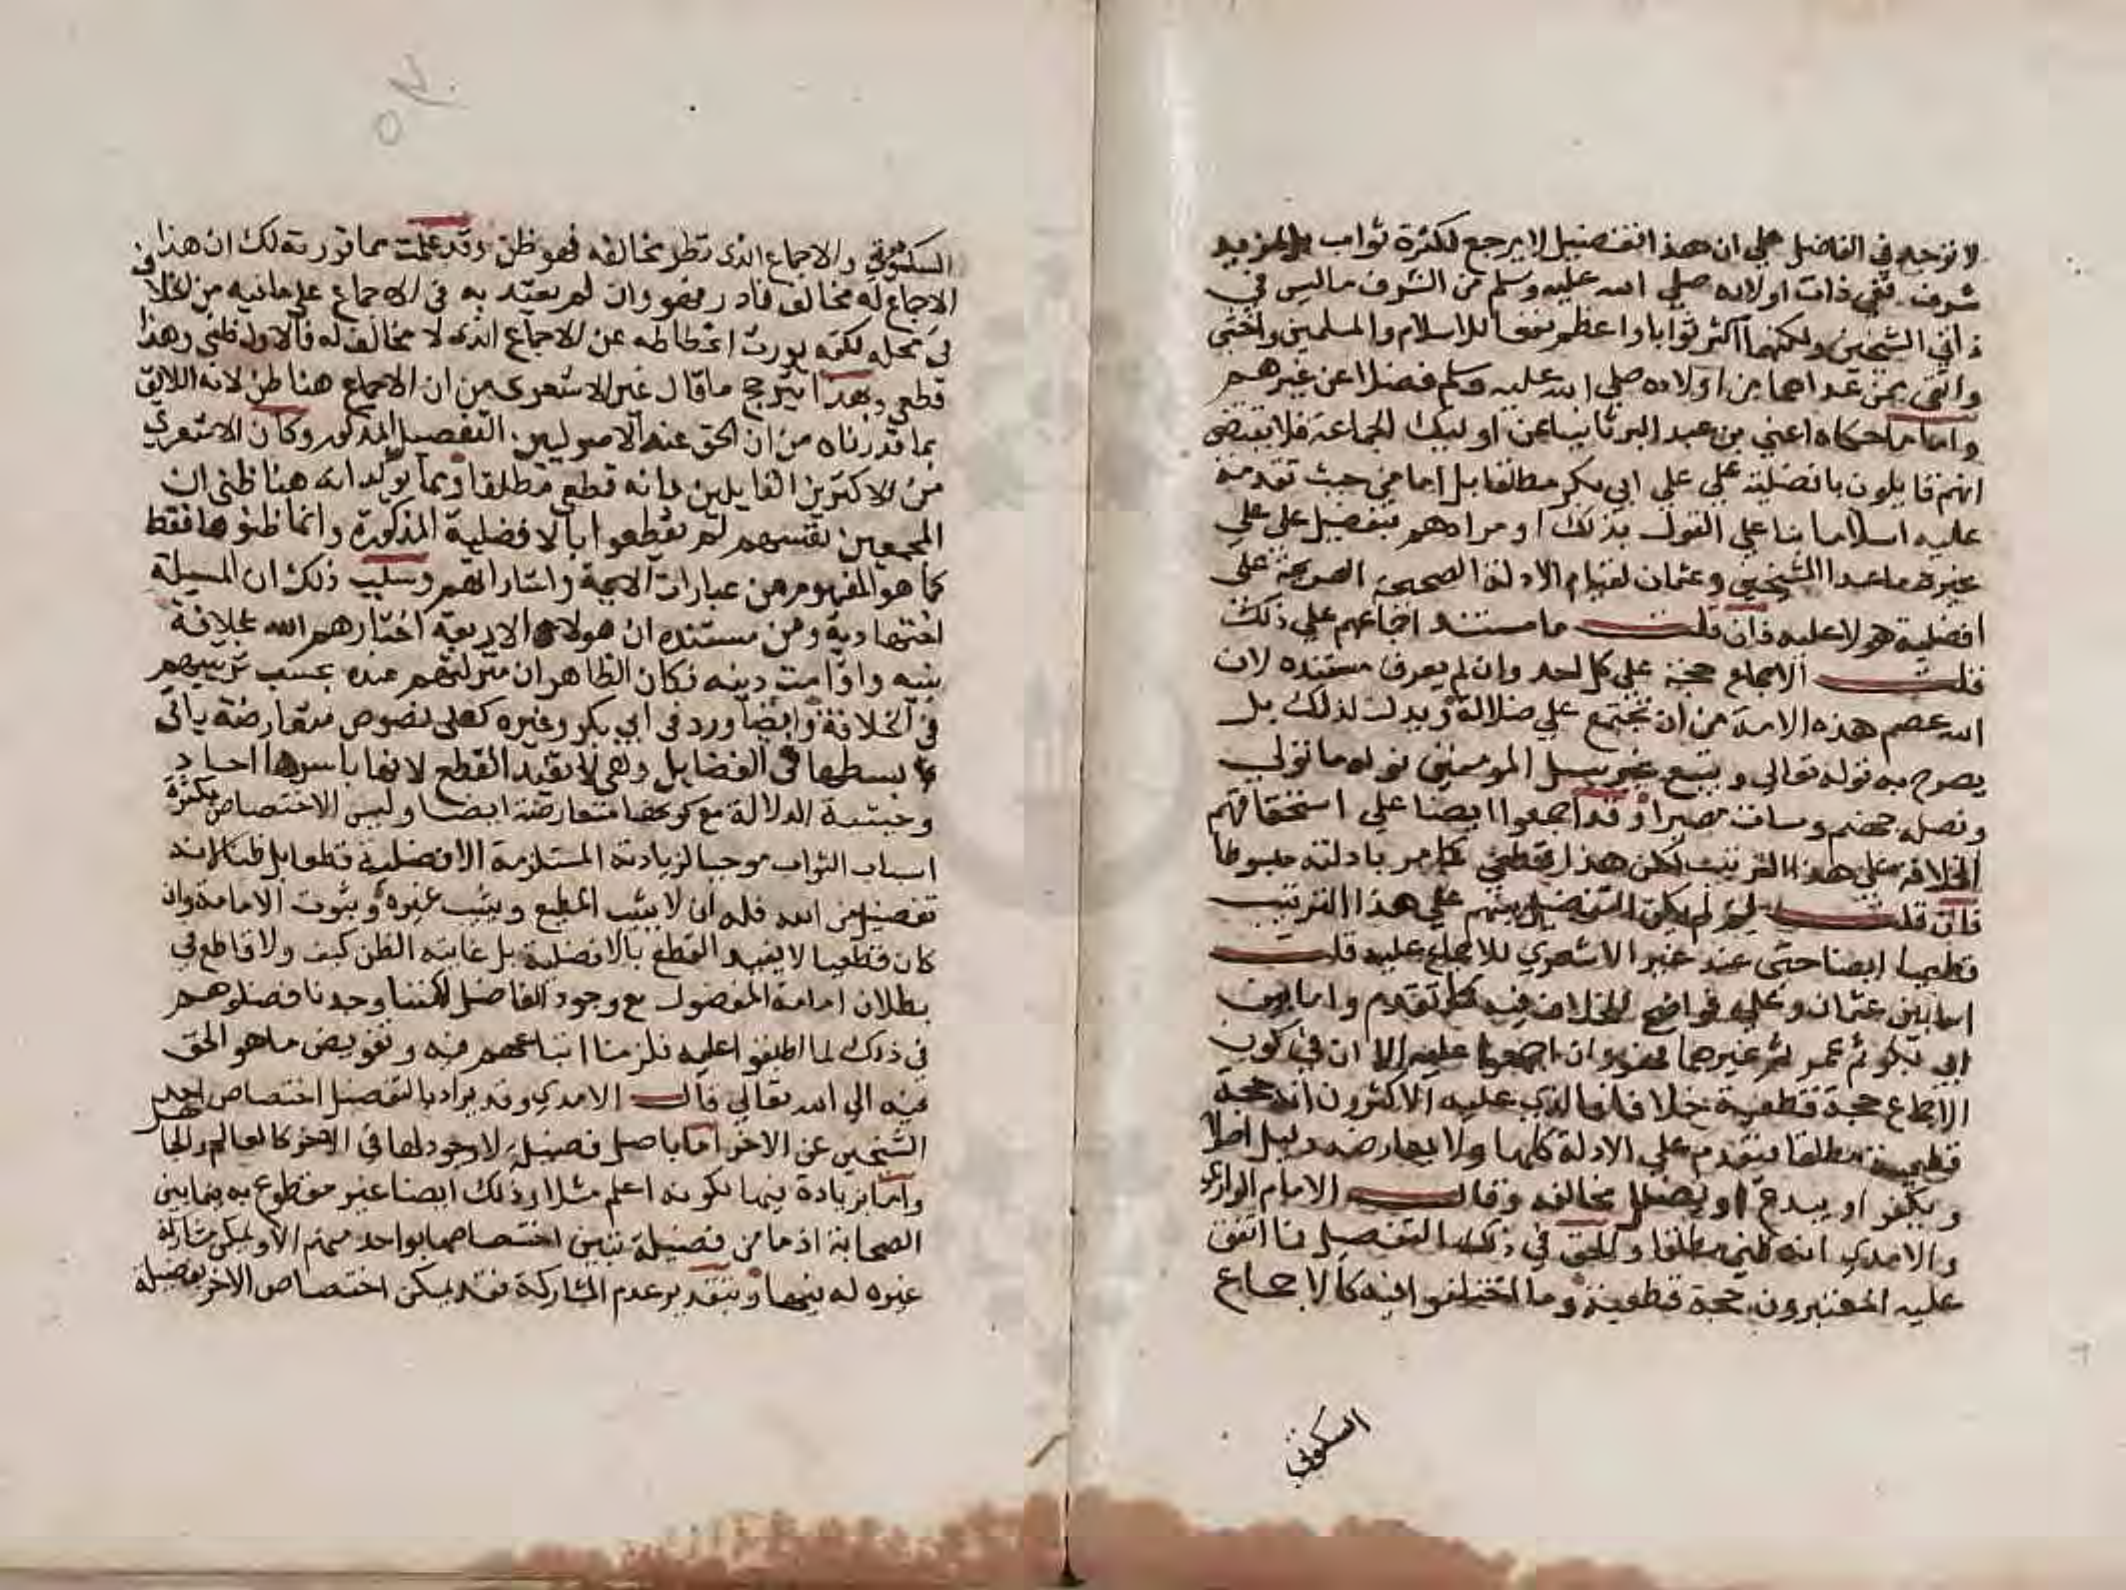 لا توجد في الفاضل علي ان هذا التفضيل لا يرجع لكثرة ثواب بل لمزيد
شرف ففي ذات اولاده صلي الله عليه وسلم من الشرف ما ليس في
ذاتي الشيخين ولكنهما اكثر ثوابا واعظم نفعا للاسلام والمسلمين واخشي
واتقي ممن عداهما من اولاده صلي الله عليه وسلم فضلا عن غيرهم
واما ما حكاه اعني بن عبد البر ثانيا عن اوليك الجماعة فلا يقتضي
انهم قايلون بافضلية علي علي ابي بكر مطلقا بل اما من حيث تقدمه
عليه اسلاما بنا علي القول بذلك او مرادهم بتفضيل علي علي
غيره ما عدا الشيخين وعثمان لقيام الادلة الصحيحة الصريحة علي
افضلية هولا عليه فان قلت ما مستند اجماعهم علي ذلك
قلت الاجماع حجة علي كل احد وان لم يعرف مستنده لان
الله عصم هذه الامة من ان تجتمع علي ضلالة ويدل لذلك بل
يصرح به قوله تعالي ويتبع غير سبيل المومنين نوله ما تولي
ونصله جهنم وسات مصيرا وقد اجمعوا ايضا علي استحقاقهم
الخلافة علي هذا الترتيب لكن هذا قطعي كما مر بادلته مبسوطا
فان قلت لم لم يكن التفضيل بينهم علي هذا الترتيب
قطعيا ايضا حتي عند غير الاشعري للاجماع عليه قلت
اما بين عثمان وعلي فواضح للخلاف فيه كما تقدم واما بين
ابي بكر ثم عمر ثم غيرهما فهو وان اجمعوا عليه الا ان في كون
الاجماع حجة قطعية خلافا فالذي عليه الاكثرون انه حجة
قطعية مطلقا فيقدم علي الادلة كلها ولا يعارضه دليل اصلا
ويكفر او يبدع او يضلل مخالفه وقال الامام الرازي
والامدي انه ظني مطلقا والحق في ذلك التفصيل فما اتفق
عليه المعتبرون حجة قطعية وما اختلفوا فيه كالاجماع
السكوتي
السكوتي والاجماع الذي ندر مخالفه فهو ظن وقد علمت مما قررته لك ان هذا
الاجماع له مخالف نادر فهو وان لم يعتد به في الاجماع علي ما فيه من الخلاف
في محله لكنه يورث انحطاطه عن الاجماع الذي لا مخالف له فالاول ظني وهذا
قطعي وبهذا يترجح ما قال غير الاشعري من ان الاجماع هنا ظن لانه اللايق
بما قدرناه من ان الحق عند الاصوليين التفصيل المذكور وكان الاشعري
من الاكثرين القايلين بانه قطعي مطلقا ومما يوكد انه هنا ظني ان
المجمعين نفسهم لم يقطعوا بالافضلية المذكورة وانما ظنوها فقط
كما هو المفهوم من عبارات الايمة واشاراتهم وسبب ذلك ان المسيلة
اجتهادية ومن مستنده ان هولاء الاربعة اختارهم الله بخلافة
نبيه واقامت دينه فكان الظاهر ان منزلتهم عنده بحسب ترتيبهم
في الخلافة وايضا ورد في ابي بكر وغيره كعلي نصوص متعارضة ياتي
بسطها في الفضايل وهي لا تفيد القطع لانها باسرها احاد
وظنية الدلالة مع كونها متعارضة ايضا وليس الاختصاص بكثرة
اسباب الثواب موجبا لزيادته المستلزمة الافضلية قطعا بل ظنا لانه
تفضيل من الله فله ان لا يثيب المطيع ويثيب غيره وثبوت الامامة وان
كان قطعيا لا يفيد القطع بالافضلية بل غايته الظن كيف ولا قاطع في
بطلان امامة المفضول مع وجود الفاضل لكننا وجدنا فضلوهم
في ذلك لما اطبقوا عليه فلزمنا اتباعهم فيه وتفويض ما هو الحق
فيه الي الله تعالي قال الامدي وقد يراد بالتفضيل اختصاص احد
الشخصين عن الاخر اما باصل فضيلة لا وجود لها في الاخر كالعالم والجاهل
واما بزيادة فيها لكونه اعلم مثلا وذلك ايضا غير مقطوع به فيما بين
الصحابة اذ ما من فضيلة تبين اختصاصها بواحد منهم الا ويمكن مشاركة
غيره له فيها وبتقدير عدم المشاركة فقد يمكن اختصاص الاخر بفضيلة